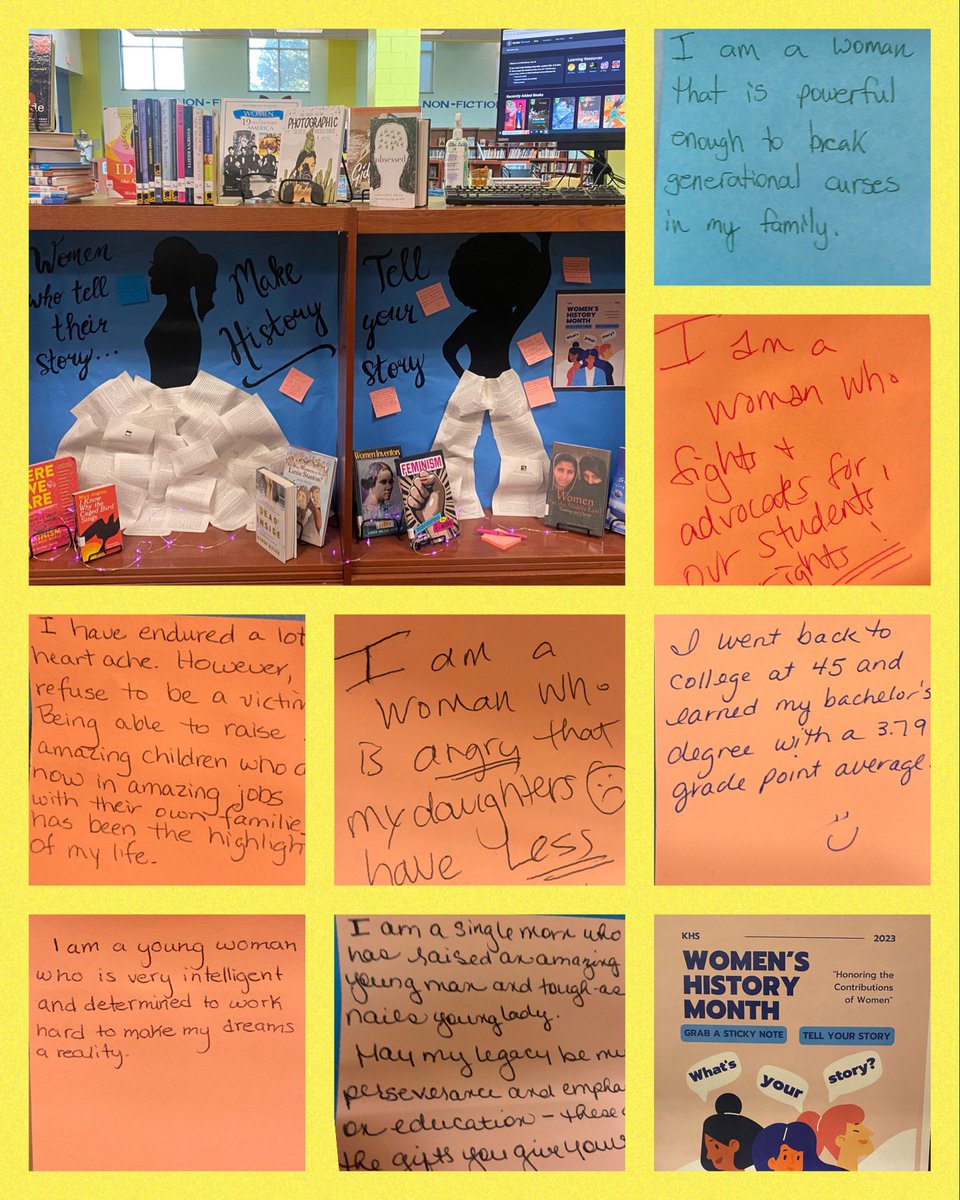 NON-FICTION
NON-FICTION
Learning Resources
Recently Added Books
WOMEN
19TH CENTURY
AMERICA
PHOTOGRAPHIC
obsessed
Women
who tell
their
story...
Make
History
Tell
your
story
WOMEN'S
HISTORY
MONTH
What's
your
story?
HERE
WE
ARE
FEMINISM
I Know
Why the
Caged Bird
Sings
DEAD
Women Inventors
FEMINISM
Women
in the Middle East
I am a woman
that is powerful
enough to break
generational curses
in my family.
I am a
woman who
fights +
advocates for
our students
rights
I have endured a lot
heartache. However,
refuse to be a victim
Being able to raise
amazing children who
now in amazing jobs
with their own familie
has been the highligh
of my life.
I am a
woman who
is angry that
my daughters
have Less
I went back to
college at 45 and
earned my bachelor's
degree with a 3.79
grade point average.
I am a young woman
who is very intelligent
and determined to work
hard to make my dreams
a reality.
I am a single mom who
has raised an amazing
young man and tough-as
nails young lady.
May my legacy be
perseverance and empha
on education - these
the gifts you give your
KHS 2023
WOMEN'S
HISTORY
MONTH
"Honoring the
Contributions
of Women"
GRAB A STICKY NOTE TELL YOUR STORY
What's
your
story?